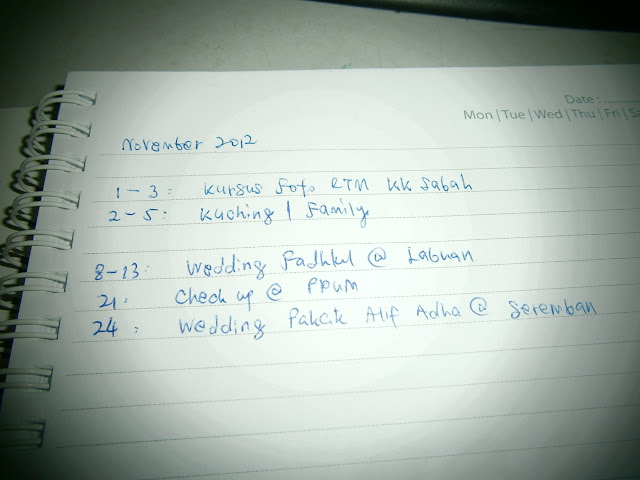 Date :
Mon | Tue | Wed | Thu | Fri | Sa
November 2012
1 - 3 : kursus foto RTM KK Sabah
2 - 5 : Kuching / Family
8 - 13 : Wedding Fadhlul @ Labuan
21 : Check up @ PPUM
24 : Wedding Pakcik Alif Adha @ Seremban